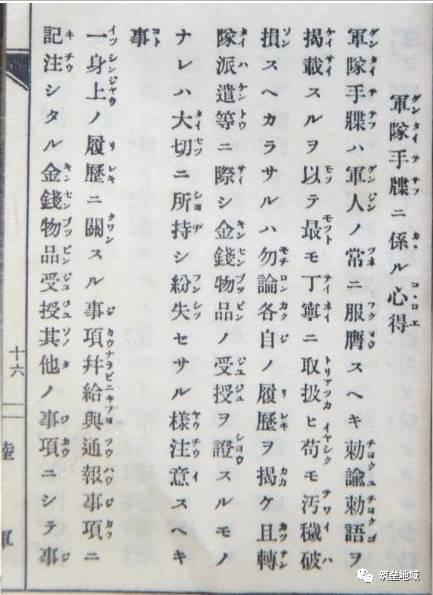 軍隊手牒ニ係ル心得
軍隊手牒ハ軍人ノ常ニ服膺スヘキ勅諭勅語ヲ
掲載スルヲ以テ最モ丁寧ニ取扱ヒ苟モ汚穢破
損スヘカラサルハ勿論各自ノ履歷ヲ揭ケ且轉
隊派遣等ニ際シ金錢物品ノ受授ヲ證スルモノ
ナレハ大切ニ所持シ紛失セサル樣注意スヘキ
事
一身上ノ履歷ニ關スル事項幷給與通報事項ニ
記注シタル金錢物品受授其他ノ事項ニシテ事
十六
陸軍
筑垒地域